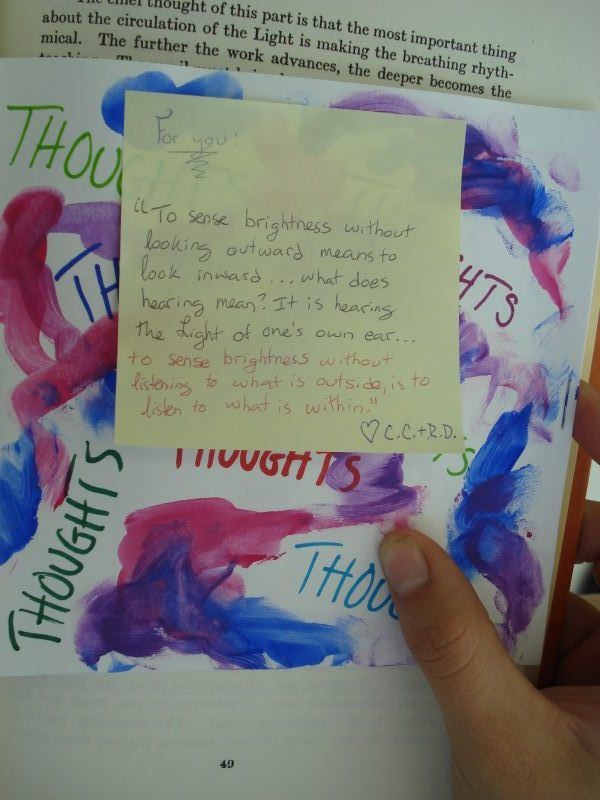 The chief thought of this part is that the most important thing
about the circulation of the Light is making the breathing rhyth-
mical. The further the work advances, the deeper becomes the
THOU
For you:
"To sense brightness without
looking outward means to
look inward... what does
hearing mean? It is hearing
the Light of one's own ear...
to sense brightness without
listening to what is outside, is to
listen to what is within."
♡ C.C.+R.D.
TH
HTS
THOUGHTS
TS
THOUGHTS
THOU
49